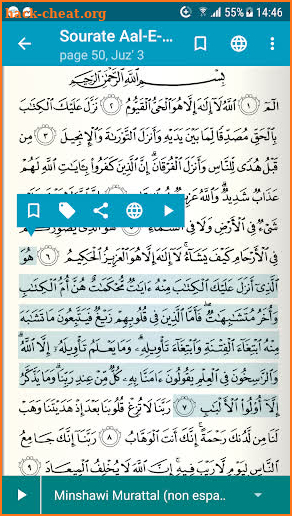 hack-cheat.org
54% 14:46
Sourate Aal-E-...
page 50, Juz' 3
بِسْمِ ٱللَّهِ ٱلرَّحْمَٰنِ ٱلرَّحِيمِ
الٓمٓ ١ ٱللَّهُ لَآ إِلَٰهَ إِلَّا هُوَ ٱلْحَىُّ ٱلْقَيُّومُ ٢ نَزَّلَ عَلَيْكَ ٱلْكِتَٰبَ
بِٱلْحَقِّ مُصَدِّقًا لِّمَا بَيْنَ يَدَيْهِ وَأَنزَلَ ٱلتَّوْرَىٰةَ وَٱلْإِنجِيلَ ٣ مِن
قَبْلُ هُدًى لِّلنَّاسِ وَأَنزَلَ ٱلْفُرْقَانَ إِنَّ ٱلَّذِينَ كَفَرُوا۟ بِـَٔايَٰتِ ٱللَّهِ لَهُمْ
عَذَابٌ شَدِيدٌ وَٱللَّهُ عَزِيزٌ
شَىْءٌ فِى ٱلْأَرْضِ وَلَا فِى ٱلسَّمَآءِ هُوَ ٱلَّذِى يُصَوِّرُكُمْ
فِى ٱلْأَرْحَامِ كَيْفَ يَشَآءُ لَآ إِلَٰهَ إِلَّا هُوَ ٱلْعَزِيزُ ٱلْحَكِيمُ ٦ هُوَ
ٱلَّذِىٓ أَنزَلَ عَلَيْكَ ٱلْكِتَٰبَ مِنْهُ ءَايَٰتٌ مُّحْكَمَٰتٌ هُنَّ أُمُّ ٱلْكِتَٰبِ
وَأُخَرُ مُتَشَٰبِهَٰتٌ فَأَمَّا ٱلَّذِينَ فِى قُلُوبِهِمْ زَيْغٌ فَيَتَّبِعُونَ مَا تَشَٰبَهَ
مِنْهُ ٱبْتِغَآءَ ٱلْفِتْنَةِ وَٱبْتِغَآءَ تَأْوِيلِهِۦ وَمَا يَعْلَمُ تَأْوِيلَهُۥٓ إِلَّا ٱللَّهُ
وَٱلرَّٰسِخُونَ فِى ٱلْعِلْمِ يَقُولُونَ ءَامَنَّا بِهِۦ كُلٌّ مِّنْ عِندِ رَبِّنَا وَمَا يَذَّكَّرُ
إِلَّآ أُو۟لُوا۟ ٱلْأَلْبَٰبِ ٧ رَبَّنَا لَا تُزِغْ قُلُوبَنَا بَعْدَ إِذْ هَدَيْتَنَا وَهَبْ
لَنَا مِن لَّدُنكَ رَحْمَةً إِنَّكَ أَنتَ ٱلْوَهَّابُ ٨ رَبَّنَآ إِنَّكَ جَامِعُ
ٱلنَّاسِ لِيَوْمٍ لَّا رَيْبَ فِيهِ إِنَّ ٱللَّهَ لَا يُخْلِفُ ٱلْمِيعَادَ ٩
Minshawi Murattal (non espa...
hack-cheat.org